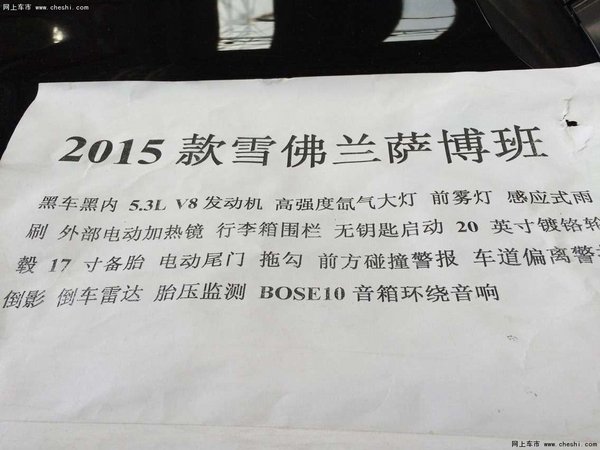 网上车市 www.cheshi.com
2015 款雪佛兰萨博班
黑车黑内 5.3L V8 发动机 高强度氙气大灯 前雾灯 感应式雨
刷 外部电动加热镜 行李箱围栏 无钥匙启动 20 英寸镀铬轮
毂 17 寸备胎 电动尾门 拖勾 前方碰撞警报 车道偏离警
倒影 倒车雷达 胎压监测 BOSE10 音箱环绕音响
网上车市 www.cheshi.com